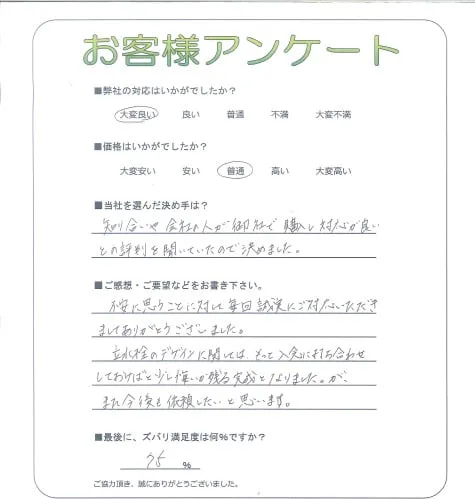 お客様アンケート
■弊社の対応はいかがでしたか？
大変良い 良い 普通 不満 大変不満
■価格はいかがでしたか？
大変安い 安い 普通 高い 大変高い
■当社を選んだ決め手は？
知り合いや会社の人が御社で購入し対応が良い
との評判を聞いていたので決めました。
■ご感想・ご要望などをお書き下さい。
不安に思うことに対して毎回誠実にご対応いただき
ましてありがとうございました。
立水栓のデザインに関しては、もっと入念に打ち合わせ
しておけばと少し悔いが残る完成となりました。が、
また今後も依頼したいと思います。
■最後に、ズバリ満足度は何%ですか？
75 %
ご協力頂き、誠にありがとうございました。